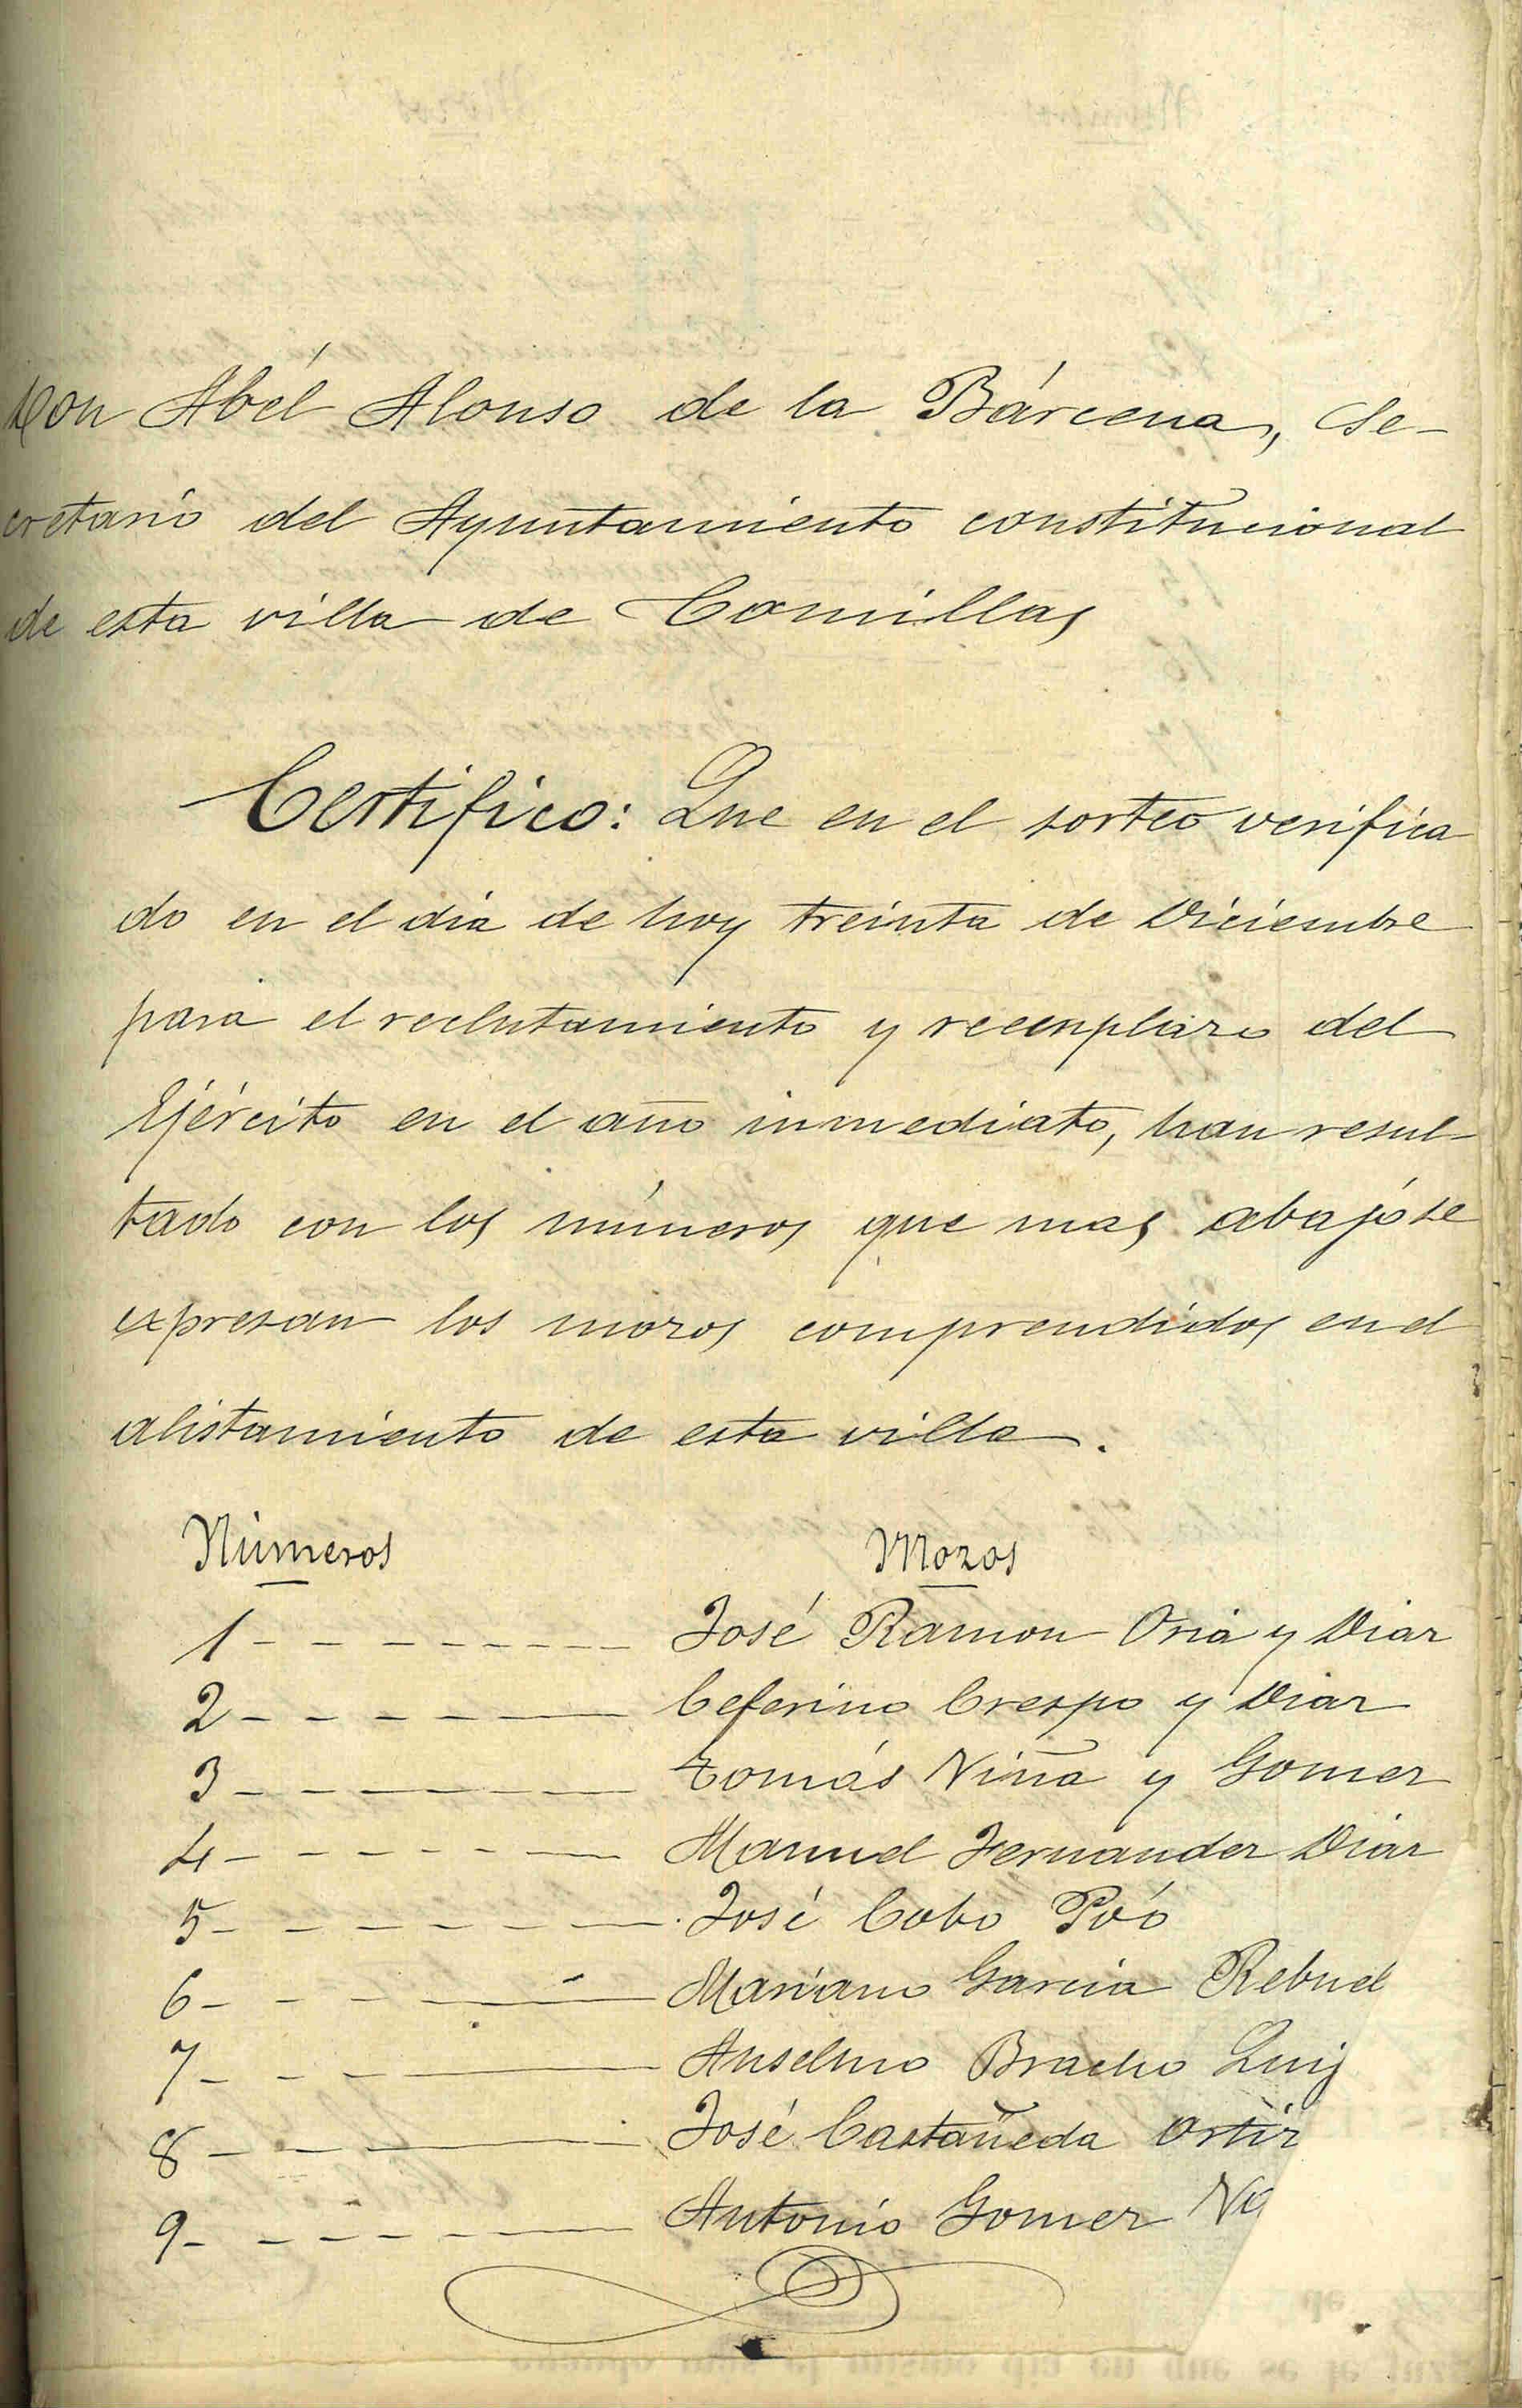 Don Abél Alonso de la Bárcena, Se-
cretario del Ayuntamiento constitucional
de esta villa de Comillas
Certifico: Que en el sorteo verifica
do en el dia de hoy treinta de Diciembre
para el reclutamiento y reemplazo del
Ejército en el año inmediato, han resul-
tado con los números que mas abajo se
expresan los mozos comprendidos en el
alistamiento de esta villa.
Números Mozos
1 - - - - - - - - José Ramon Oria y Diaz
2 - - - - - - Ceferino Crespo y Diaz
3 - - - - - - Tomás Niña y Gomez
4 - - - - - - - Manuel Fernandez Diaz
5 - - - - - - - José Cobo Póo
6 - - - - - Mariano Garcia Rebuel
7 - - - - Anselmo Bracho Luis
8 - - - - José Castañeda Ortiz
9 - - - - - - Antonio Gomez